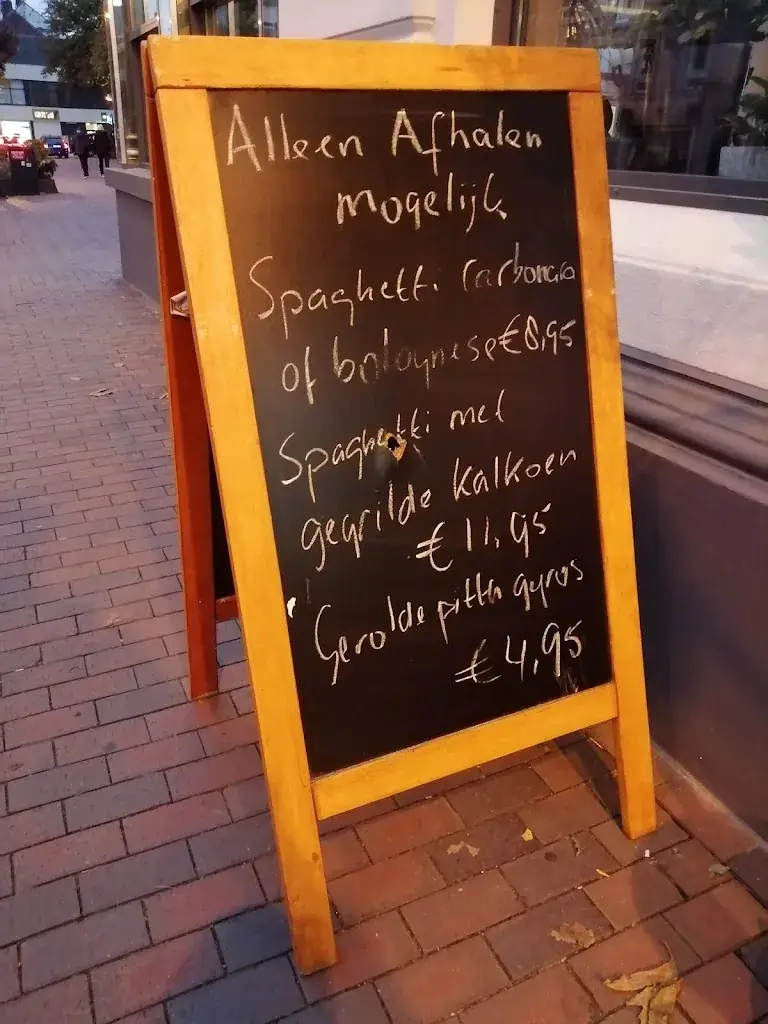 Alleen Afhalen
mogelijk
Spaghetti Carbonara
of bolognese €8,95
Spaghetti met
gegrilde kalkoen
€ 11,95
Gerolde pitta gyros
€ 4,95